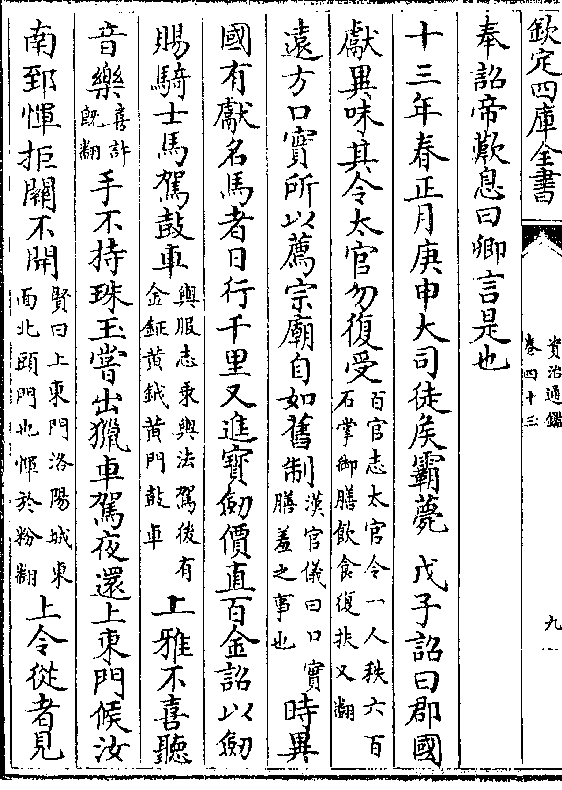 欽定四庫全書
資治通鑑
卷四十三
九
奉詔帝歎息曰卿言是也
十三年春正月庚申大司徒侯霸薨　戊子詔曰郡國
獻異味其令太官勿復受百官志太官令一人秩六百
石掌御膳飲食復扶又翻
遠方口實所以薦宗廟自如舊制漢官儀曰口實
膳羞之事也時異
國有獻名馬者日行千里又進寶劒價直百金詔以劒
賜騎士馬駕鼓車輿服志乘輿法駕後有
金鉦黄鉞黄門鼓車上雅不喜聽
音樂喜許
旣翻手不持珠玉嘗出獵車駕夜還上東門候汝
南郅惲拒關不開賢曰上東門洛陽城東
面北頭門也惲於粉翻上令從者見